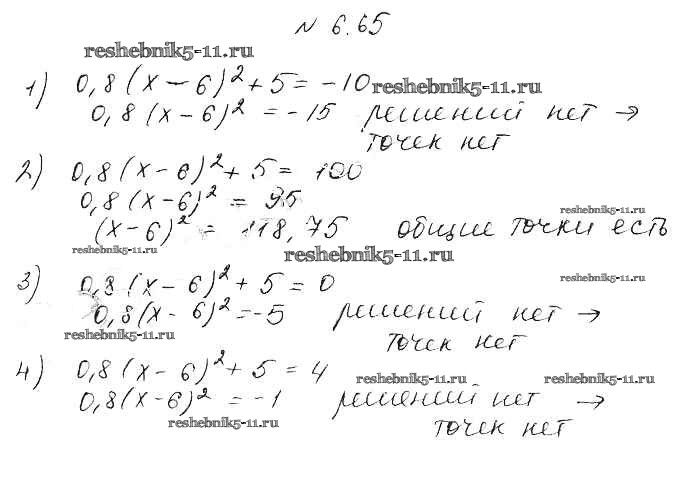 № 6.65
reshebnik5-11.ru
1) 0,8(x-6)²+5=-10 reshebnik5-11.ru
0,8(x-6)²=-15 решений нет →
точек нет
2) 0,8(x-6)²+5=100
0,8(x-6)²=95
reshebnik5-11.ru
(x-6)²=118,75 общие точки есть
reshebnik5-11.ru
reshebnik5-11.ru
3) 0,8(x-6)²+5=0
reshebnik5-11.ru
0,8(x-6)²=-5 решений нет →
reshebnik5-11.ru
точек нет
4) 0,8(x-6)²+5=4
reshebnik5-11.ru reshebnik5-11.ru
0,8(x-6)²=-1 решений нет →
reshebnik5-11.ru
точек нет